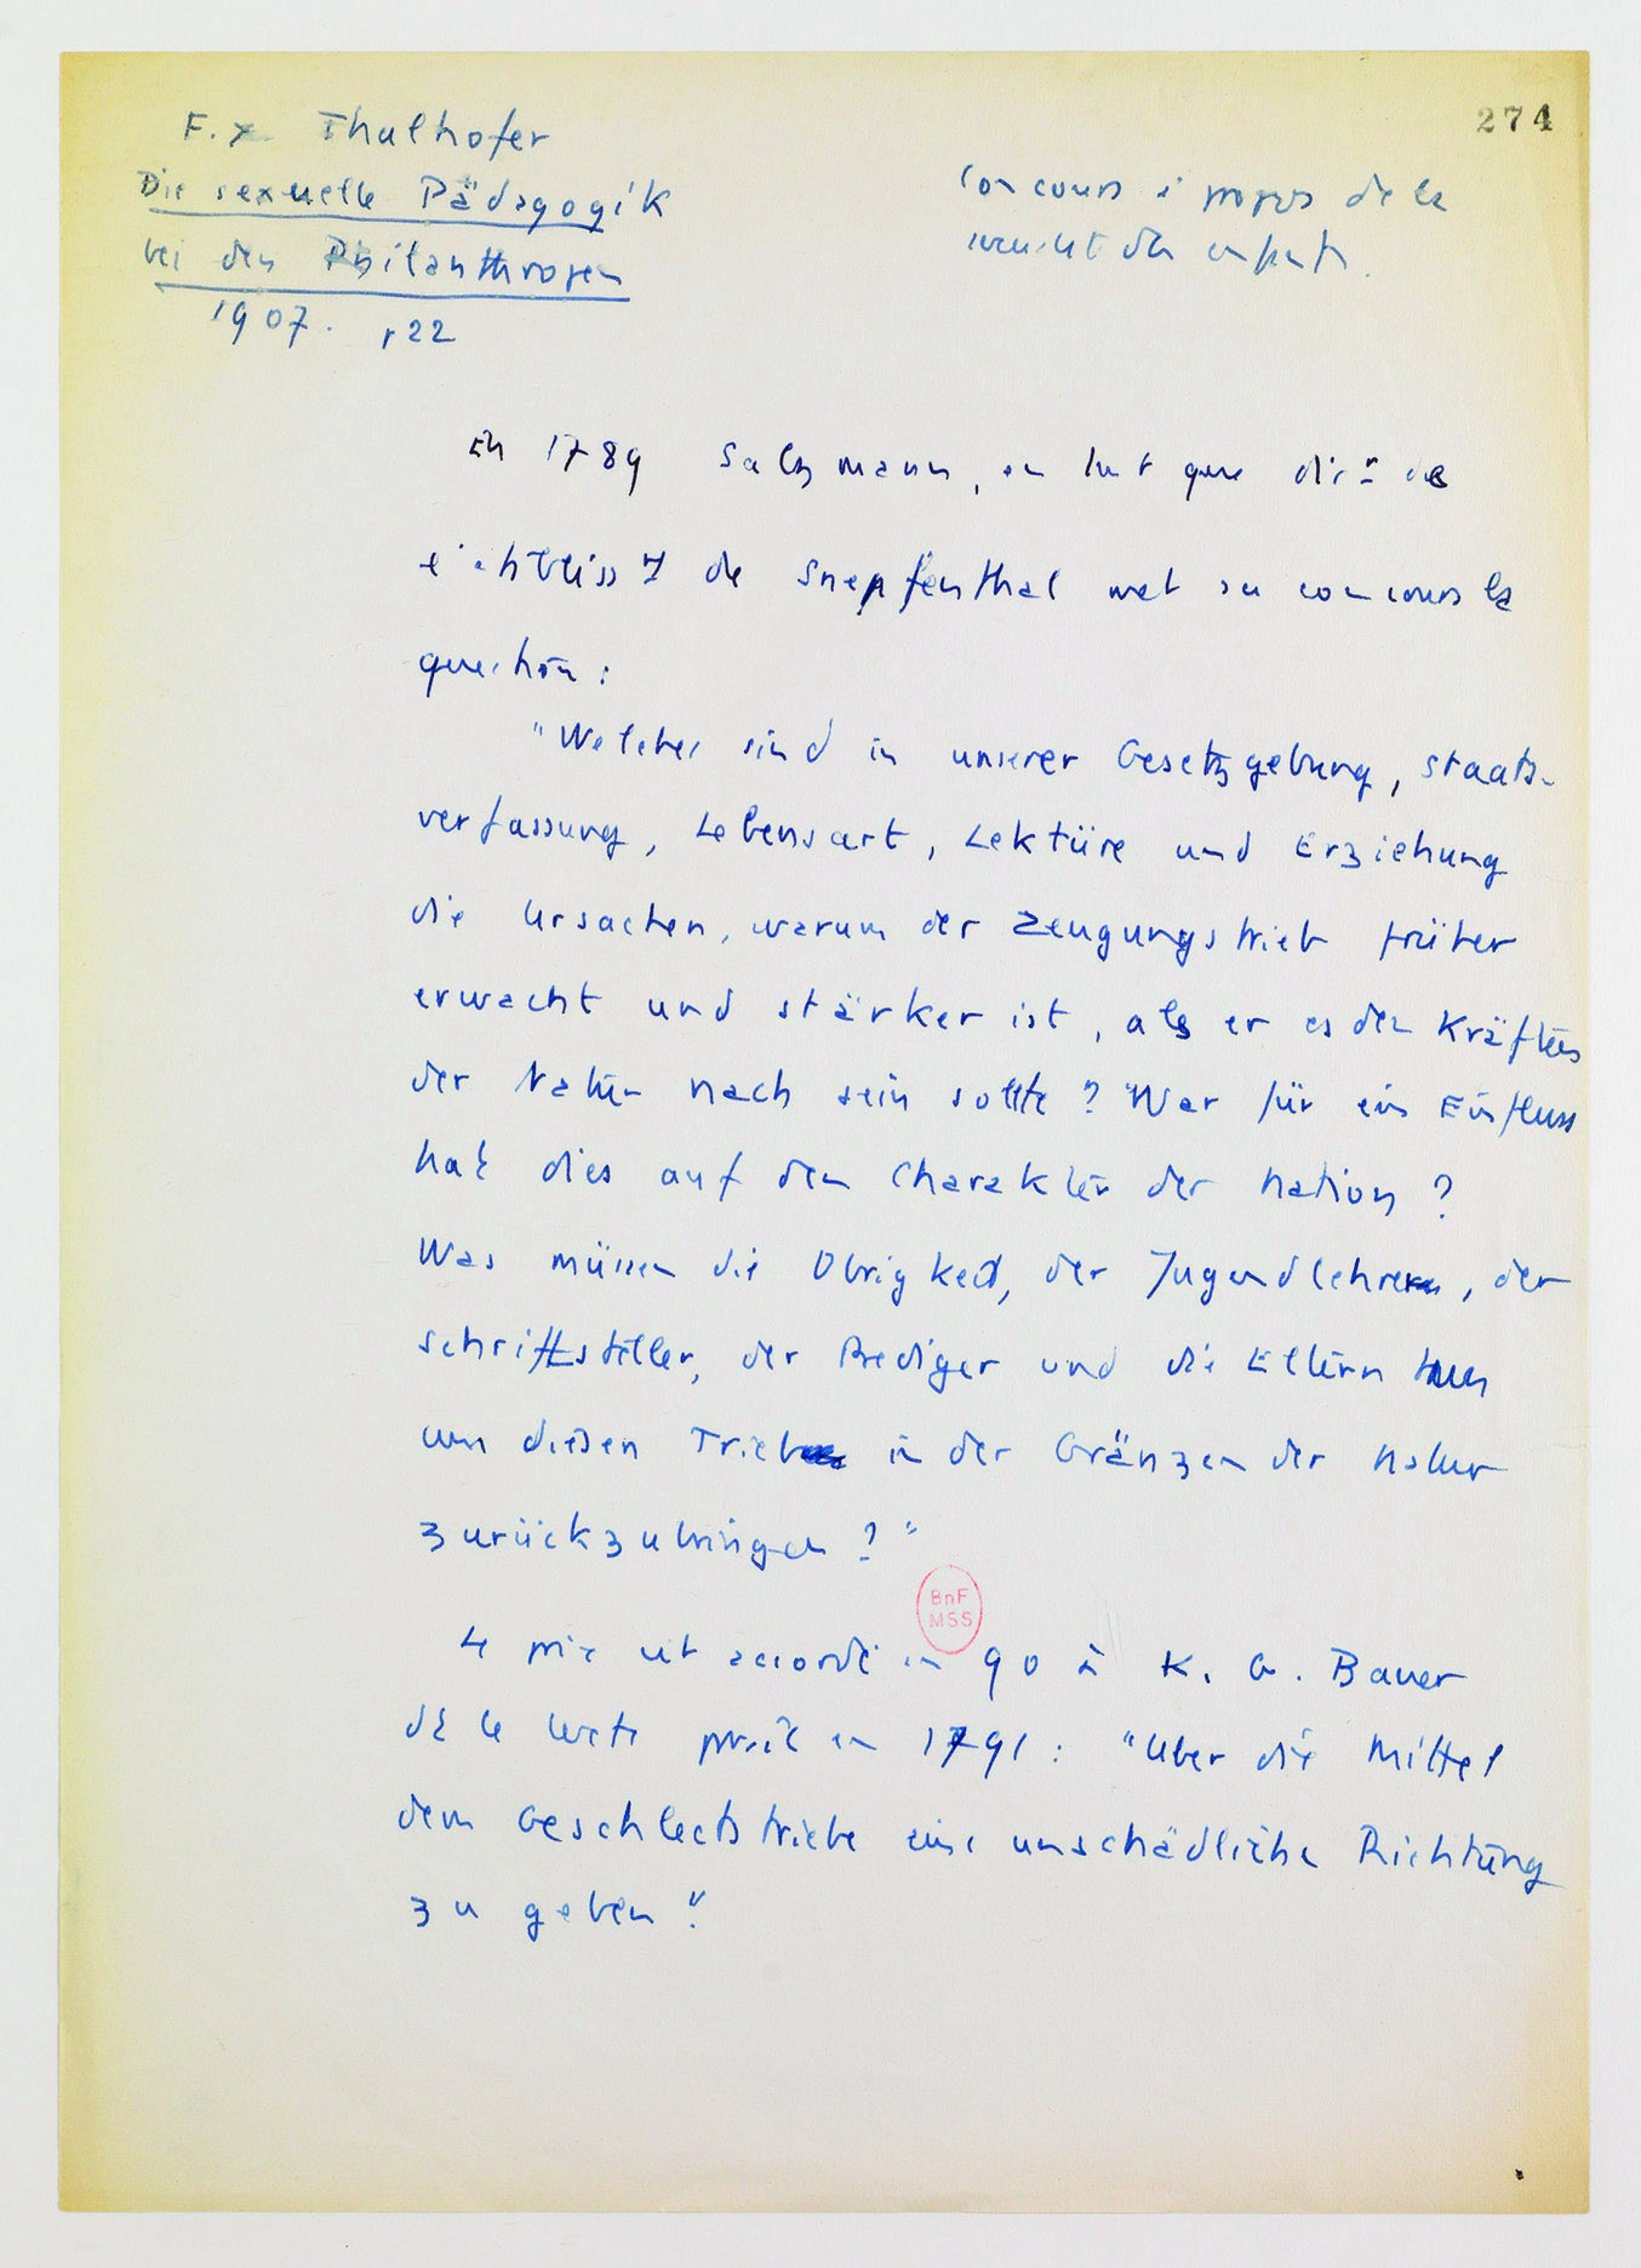 274
F. X Thalhofer
Die sexuelle Pädagogik
bei den Philanthropen
1907. p 22
Concours à propos de la
sexualité des enfants.
En 1789 Salzmann, en tant que dirr de
etabliss_t de Snepfenthal met au concours la
question :
"Welches sind in unserer Gesetzgebung, Staats-
verfassung, Lebensart, Lektüre und Erziehung
die Ursachen, warum der Zeugungstrieb früher
erwacht und stärker ist, als er es den Kräften
der Natur nach sein sollte ? War für ein Einfluss
hat dies auf den Charakter der Nation ?
Was müssen die Obrigkeit, der Jugendlehrer, der
Schriftsteller, der Prediger und die Eltern tuen
um diesen Trieb in der Gränzen der Natur
zurückzubringen ? "
Le prix est accordé en 90 à K. G. Bauer
dt le texte paraît en 1791 : "Uber die Mittel
dem Geschlectstriebe eine unschädliche Richtung
zu geben".
BnF
MSS